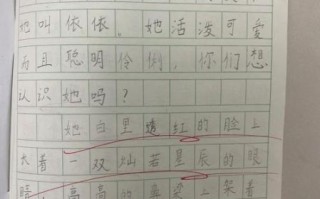 她叫依依。她活泼可爱
而且聪明伶俐，你们想
认识她吗？
她白里透红的脸上
长着一双灿若星辰的眼
睛，高高的鼻梁上架着